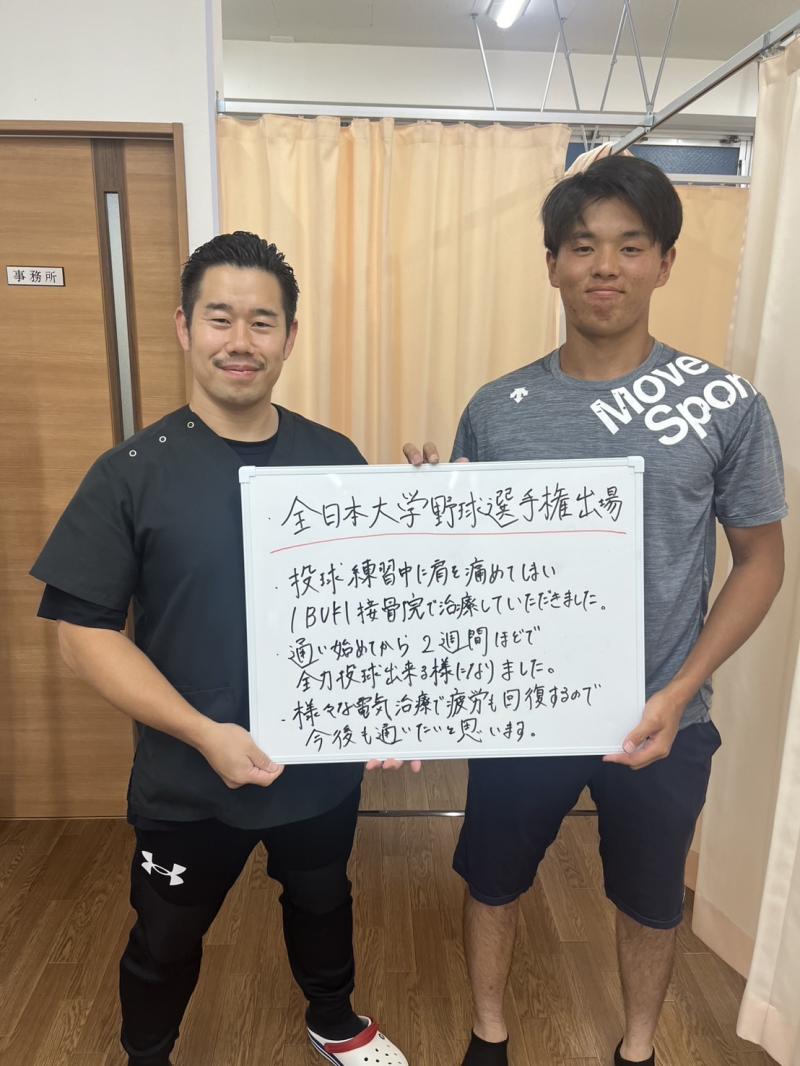 事務所
Move
Spor
・全日本大学野球選手権出場
・投球練習中に肩を痛めてしまい
IBUKI接骨院で治療していただきました。
・通い始めてから2週間ほどで
全力投球出来る様になりました。
・様々な電気治療で疲労も回復するので
今後も通いたいと思います。